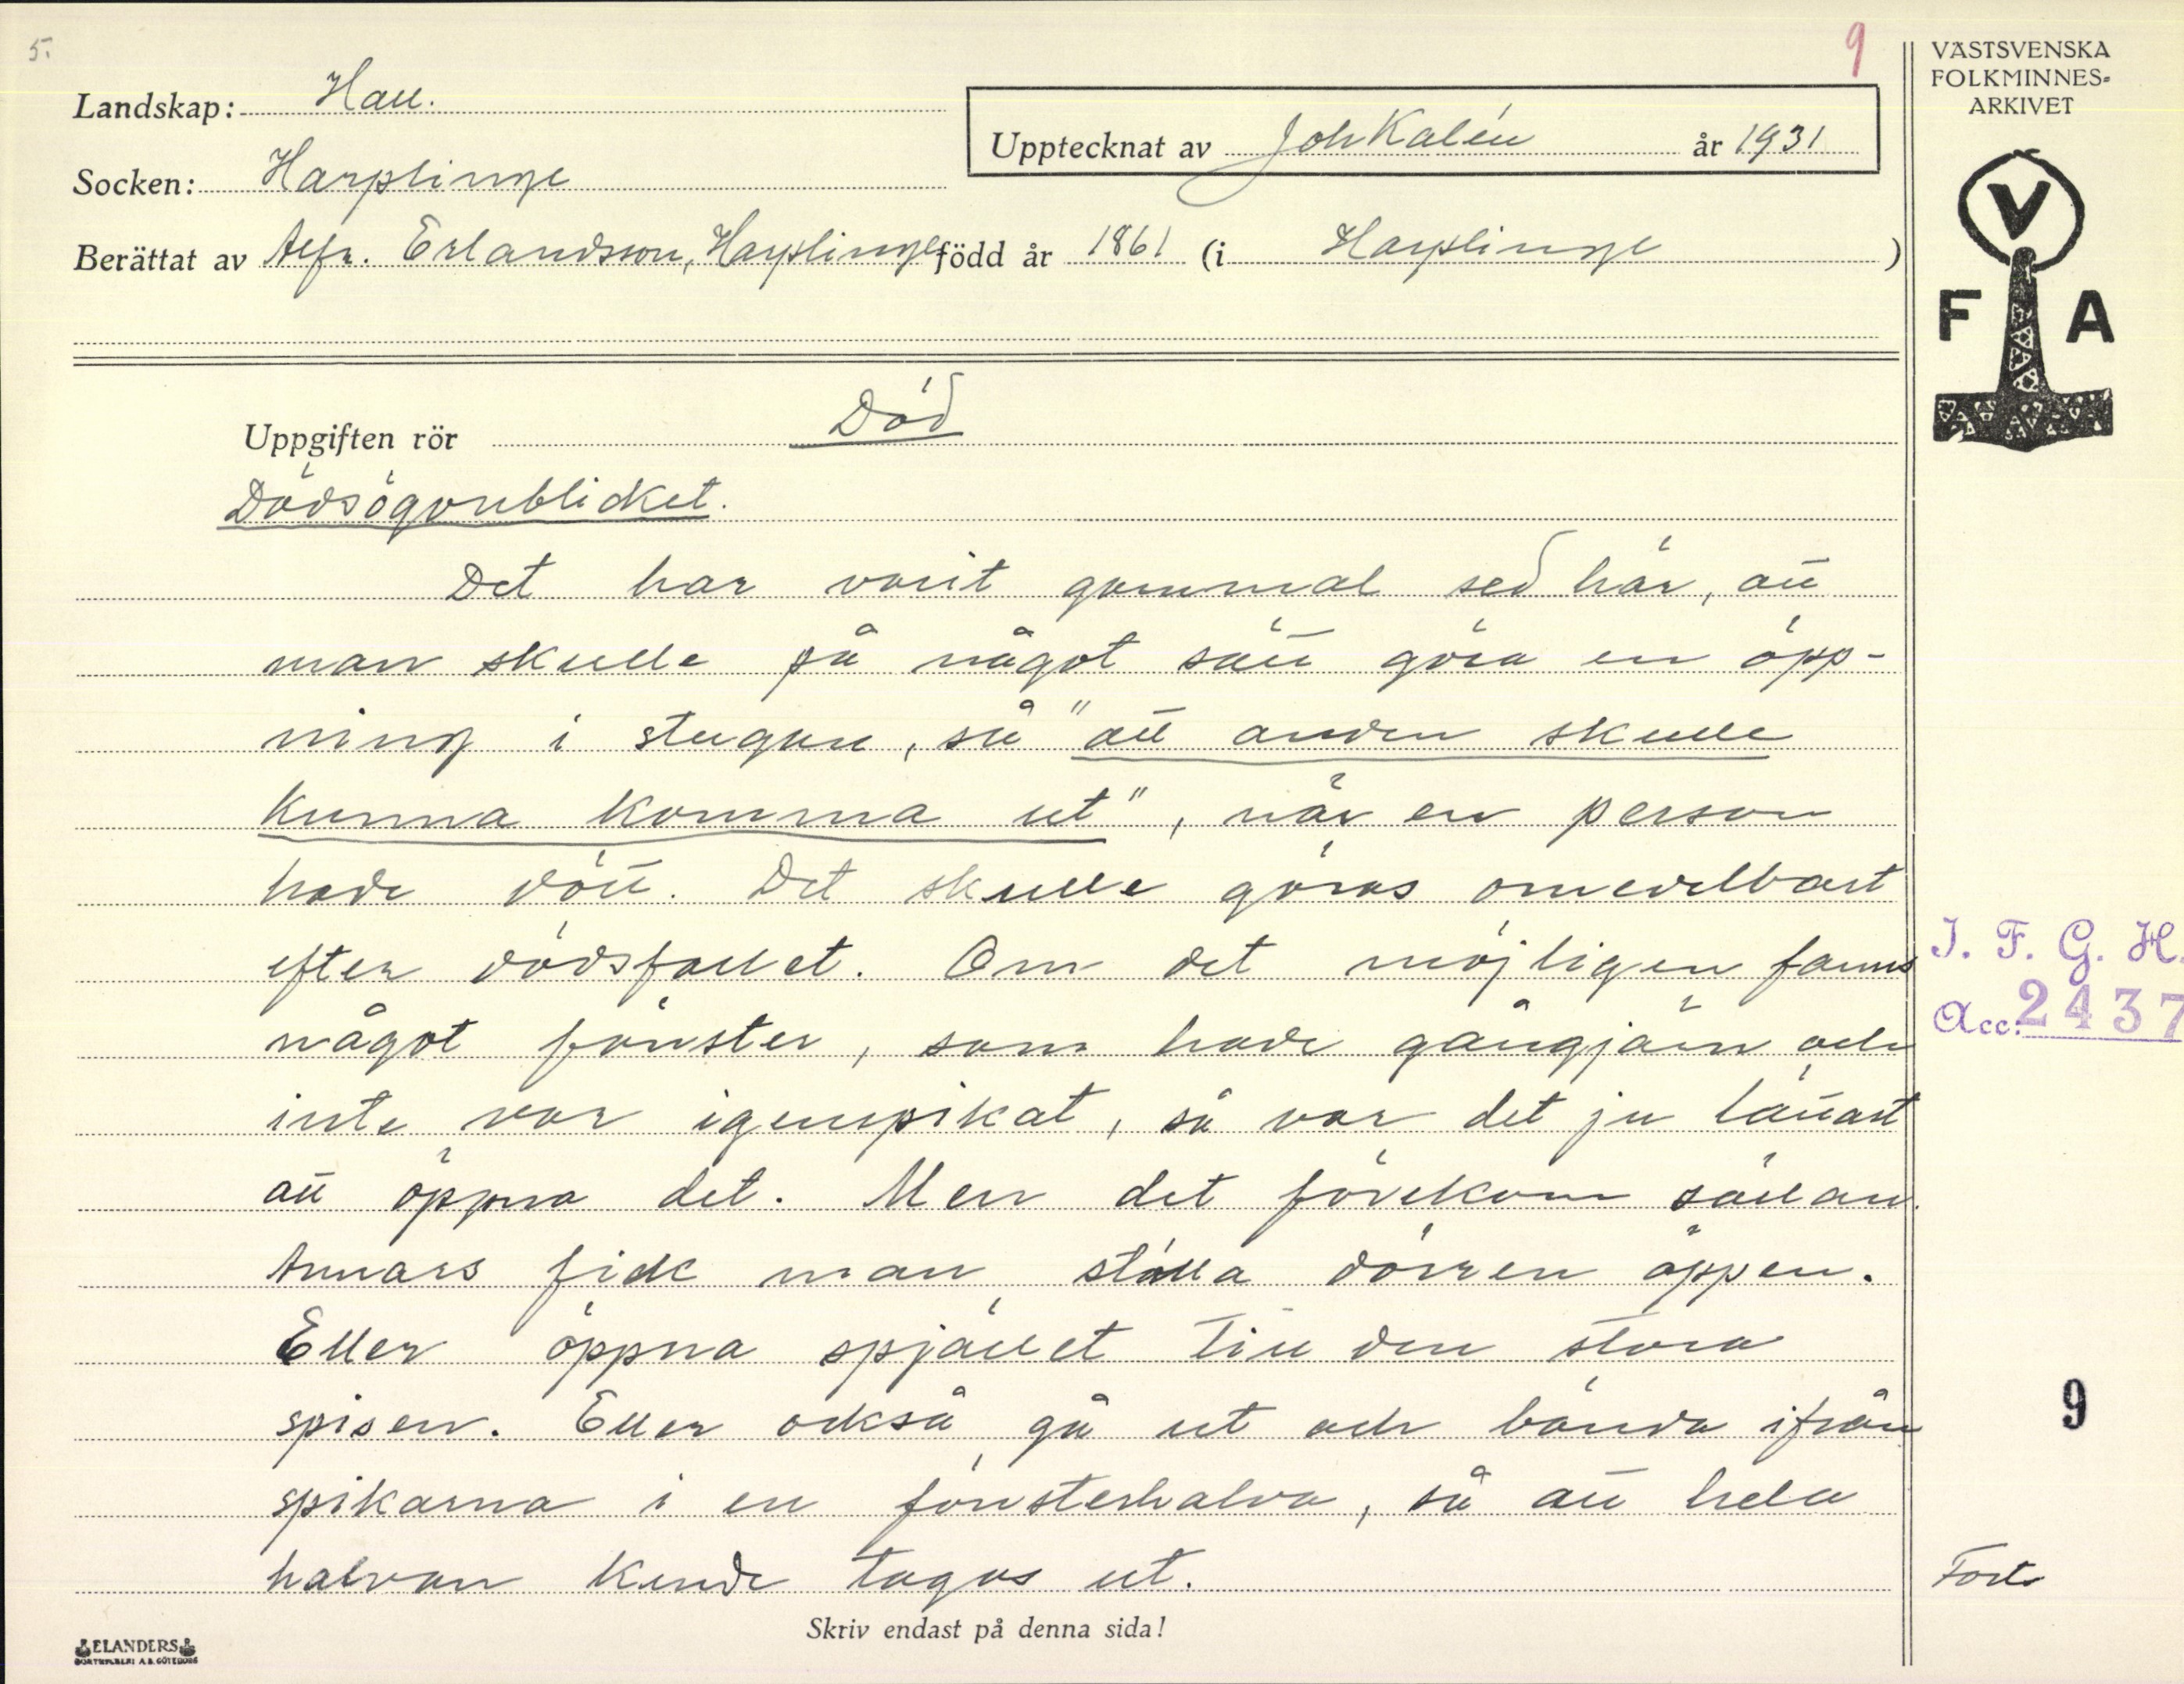 5.
9
VÄSTSVENSKA
FOLKMINNES-
ARKIVET
Landskap: Hall.
Upptecknat av Joh Kalén år 1931
Socken: Harplinge
Berättat av Alfr. Erlandsson, Harplinge född år 1861 (i Harplinge )
V
F A
Uppgiften rör Död
Dödsögonblicket.
Det har varit gammal sed här, att
man skulle på något sätt göra en öpp-
ning i stugan, så "att anden skulle
kunna komma ut", när en person
hade dött. Det skulle göras omedelbart
efter dödsfallet. Om det möjligen fanns
något fönster, som hade gångjärn och
inte var igenspikat, så var det ju lättast
att öppna det. Men det förekom sällan.
Annars fick man ställa dörren öppen.
Eller öppna spjället till den stora
spisen. Eller också gå ut och bända ifrån
spikarna i en fönsterhalva, så att hela
halvan kunde tagas ut.
I. F. G. H.
Acc. 2437
9
Forts
Skriv endast på denna sida!
ELANDERS
BOKTRYCKERI A.B. GÖTEBORG